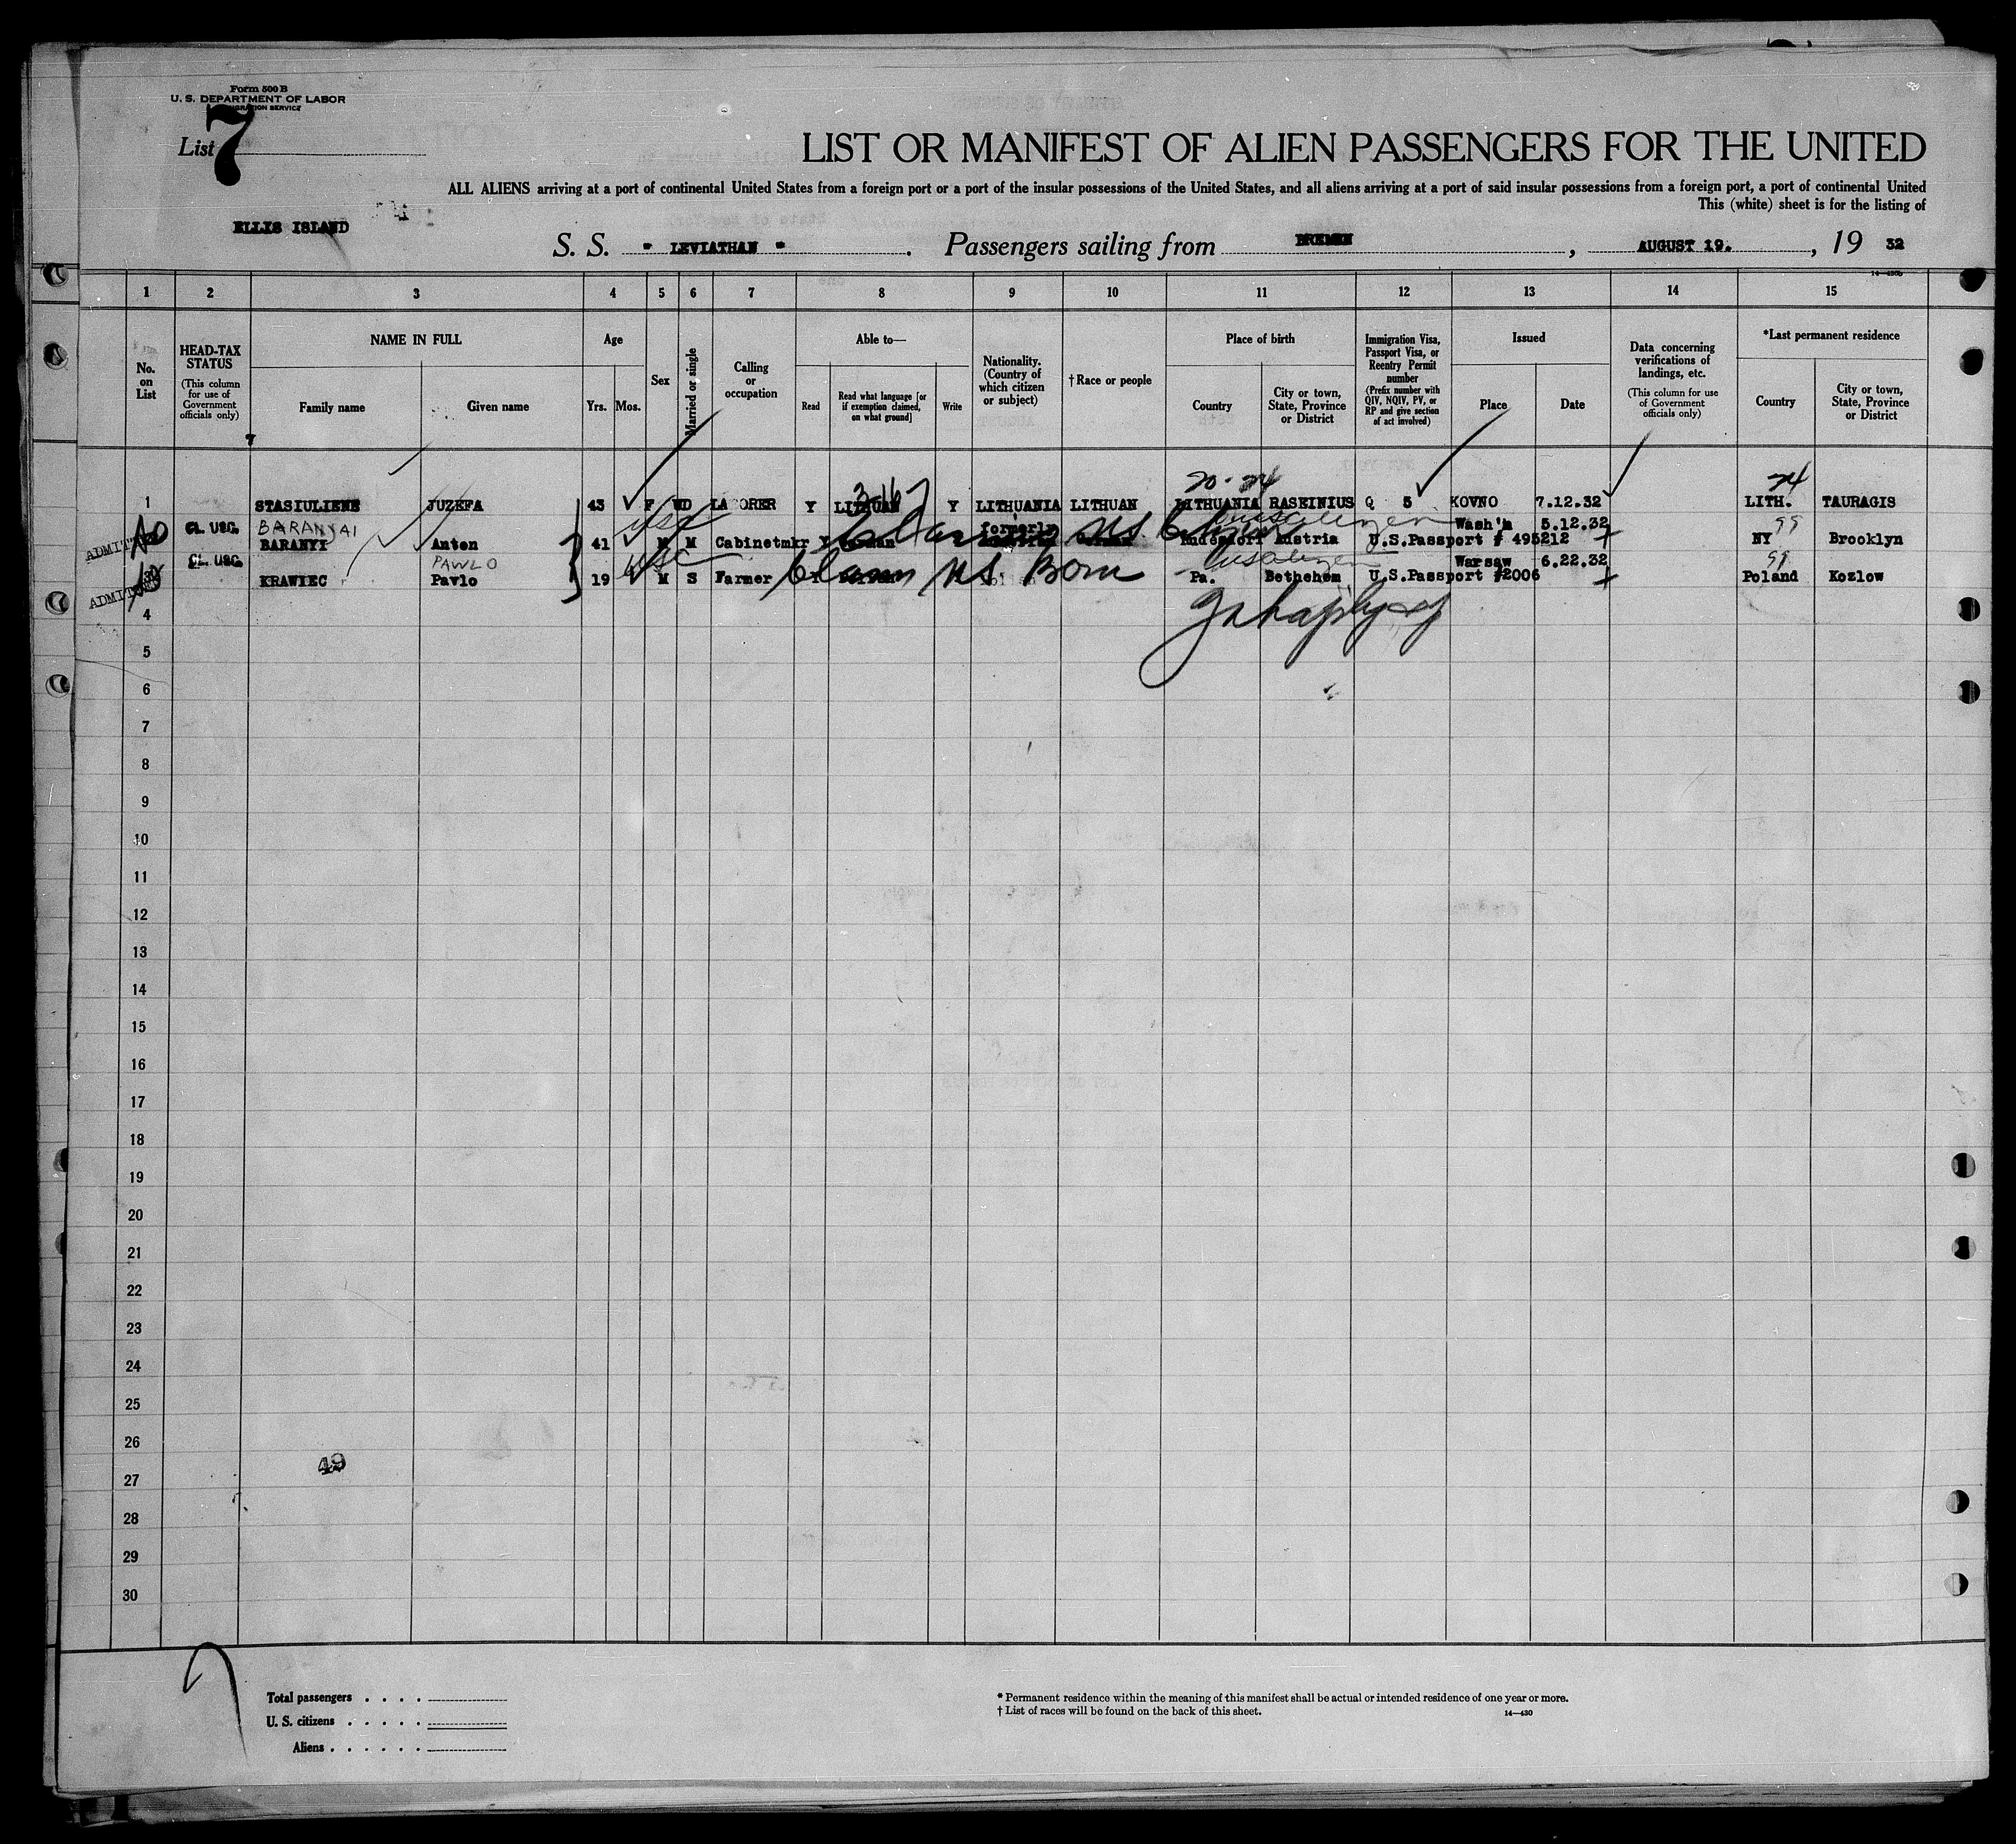 Form 500 B
U. S. DEPARTMENT OF LABOR
List 7
LIST OR MANIFEST OF ALIEN PASSENGERS FOR THE UNITED
ALL ALIENS arriving at a port of continental United States from a foreign port or a port of the insular possessions of the United States, and all aliens arriving at a port of said insular possessions from a foreign port, a port of continental United
This (white) sheet is for the listing of
ELLIS ISLAND
S. S. " LEVIATHAN ". Passengers sailing from BREMEN, AUGUST 19., 19 32
1 2 3 4 5 6 7 8 9 10 11 12 13 14 15
No. on List
HEAD-TAX STATUS
(This column for use of Government officials only)
NAME IN FULL
Family name
Given name
Age
Yrs. Mos.
Sex
Married or single
Calling or occupation
Able to—
Read
Read what language [or if exemption claimed, on what ground]
Write
Nationality. (Country of which citizen or subject)
†Race or people
Place of birth
Country
City or town, State, Province or District
Immigration Visa, Passport Visa, or Reentry Permit number
(Prefix number with QIV, NQIV, PV, or RP and give section of act involved)
Issued
Place
Date
Data concerning verifications of landings, etc.
(This column for use of Government officials only)
*Last permanent residence
Country
City or town, State, Province or District
20-24 24
1 STASIULIENE JUZEFA 43 F WD LABORER Y LITHUAN Y LITHUANIA LITHUAN LITHUANIA RASEINIUS Q 5 KOVNO 7.12.32 LITH. TAURAGIS
CL. USC. BARANYAI USC formerly Wash'n 5.12.32 99
BARANYI Anton 41 M M Cabinetmkr Y Austria U.S.Passport # 495212 NY Brooklyn
CL. USC. PAWLO USC Warsaw 6.22.32 99
KRAWIEC Pavlo 19 M S Farmer Claim US Born Pa. Bethehem U.S.Passport #2006 Poland Kozlow
4
5
6
7
8
9
10
11
12
13
14
15
16
17
18
19
20
21
22
23
24
25
26
27
28
29
30
49
Total passengers . . . .
U. S. citizens . . . . .
Aliens . . . . . .
* Permanent residence within the meaning of this manifest shall be actual or intended residence of one year or more.
† List of races will be found on the back of this sheet.
14—430